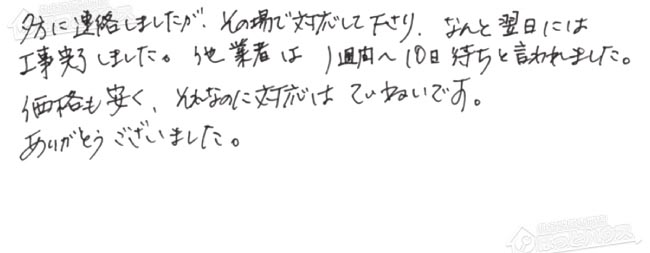 夕方に連絡しましたが、その場で対応して下さり、なんと翌日には
工事完了しました。他業者は1週間〜10日待ちと言われました。
価格も安く、それなのに対応はていねいです。
ありがとうございました。